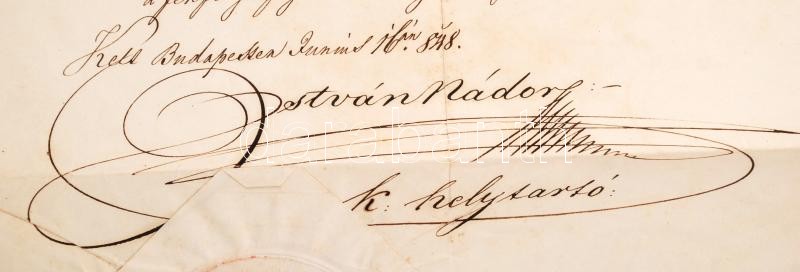 Kelt Budapesten Junius 16án 848.
István Nádor
k. helytartó.
darabanth